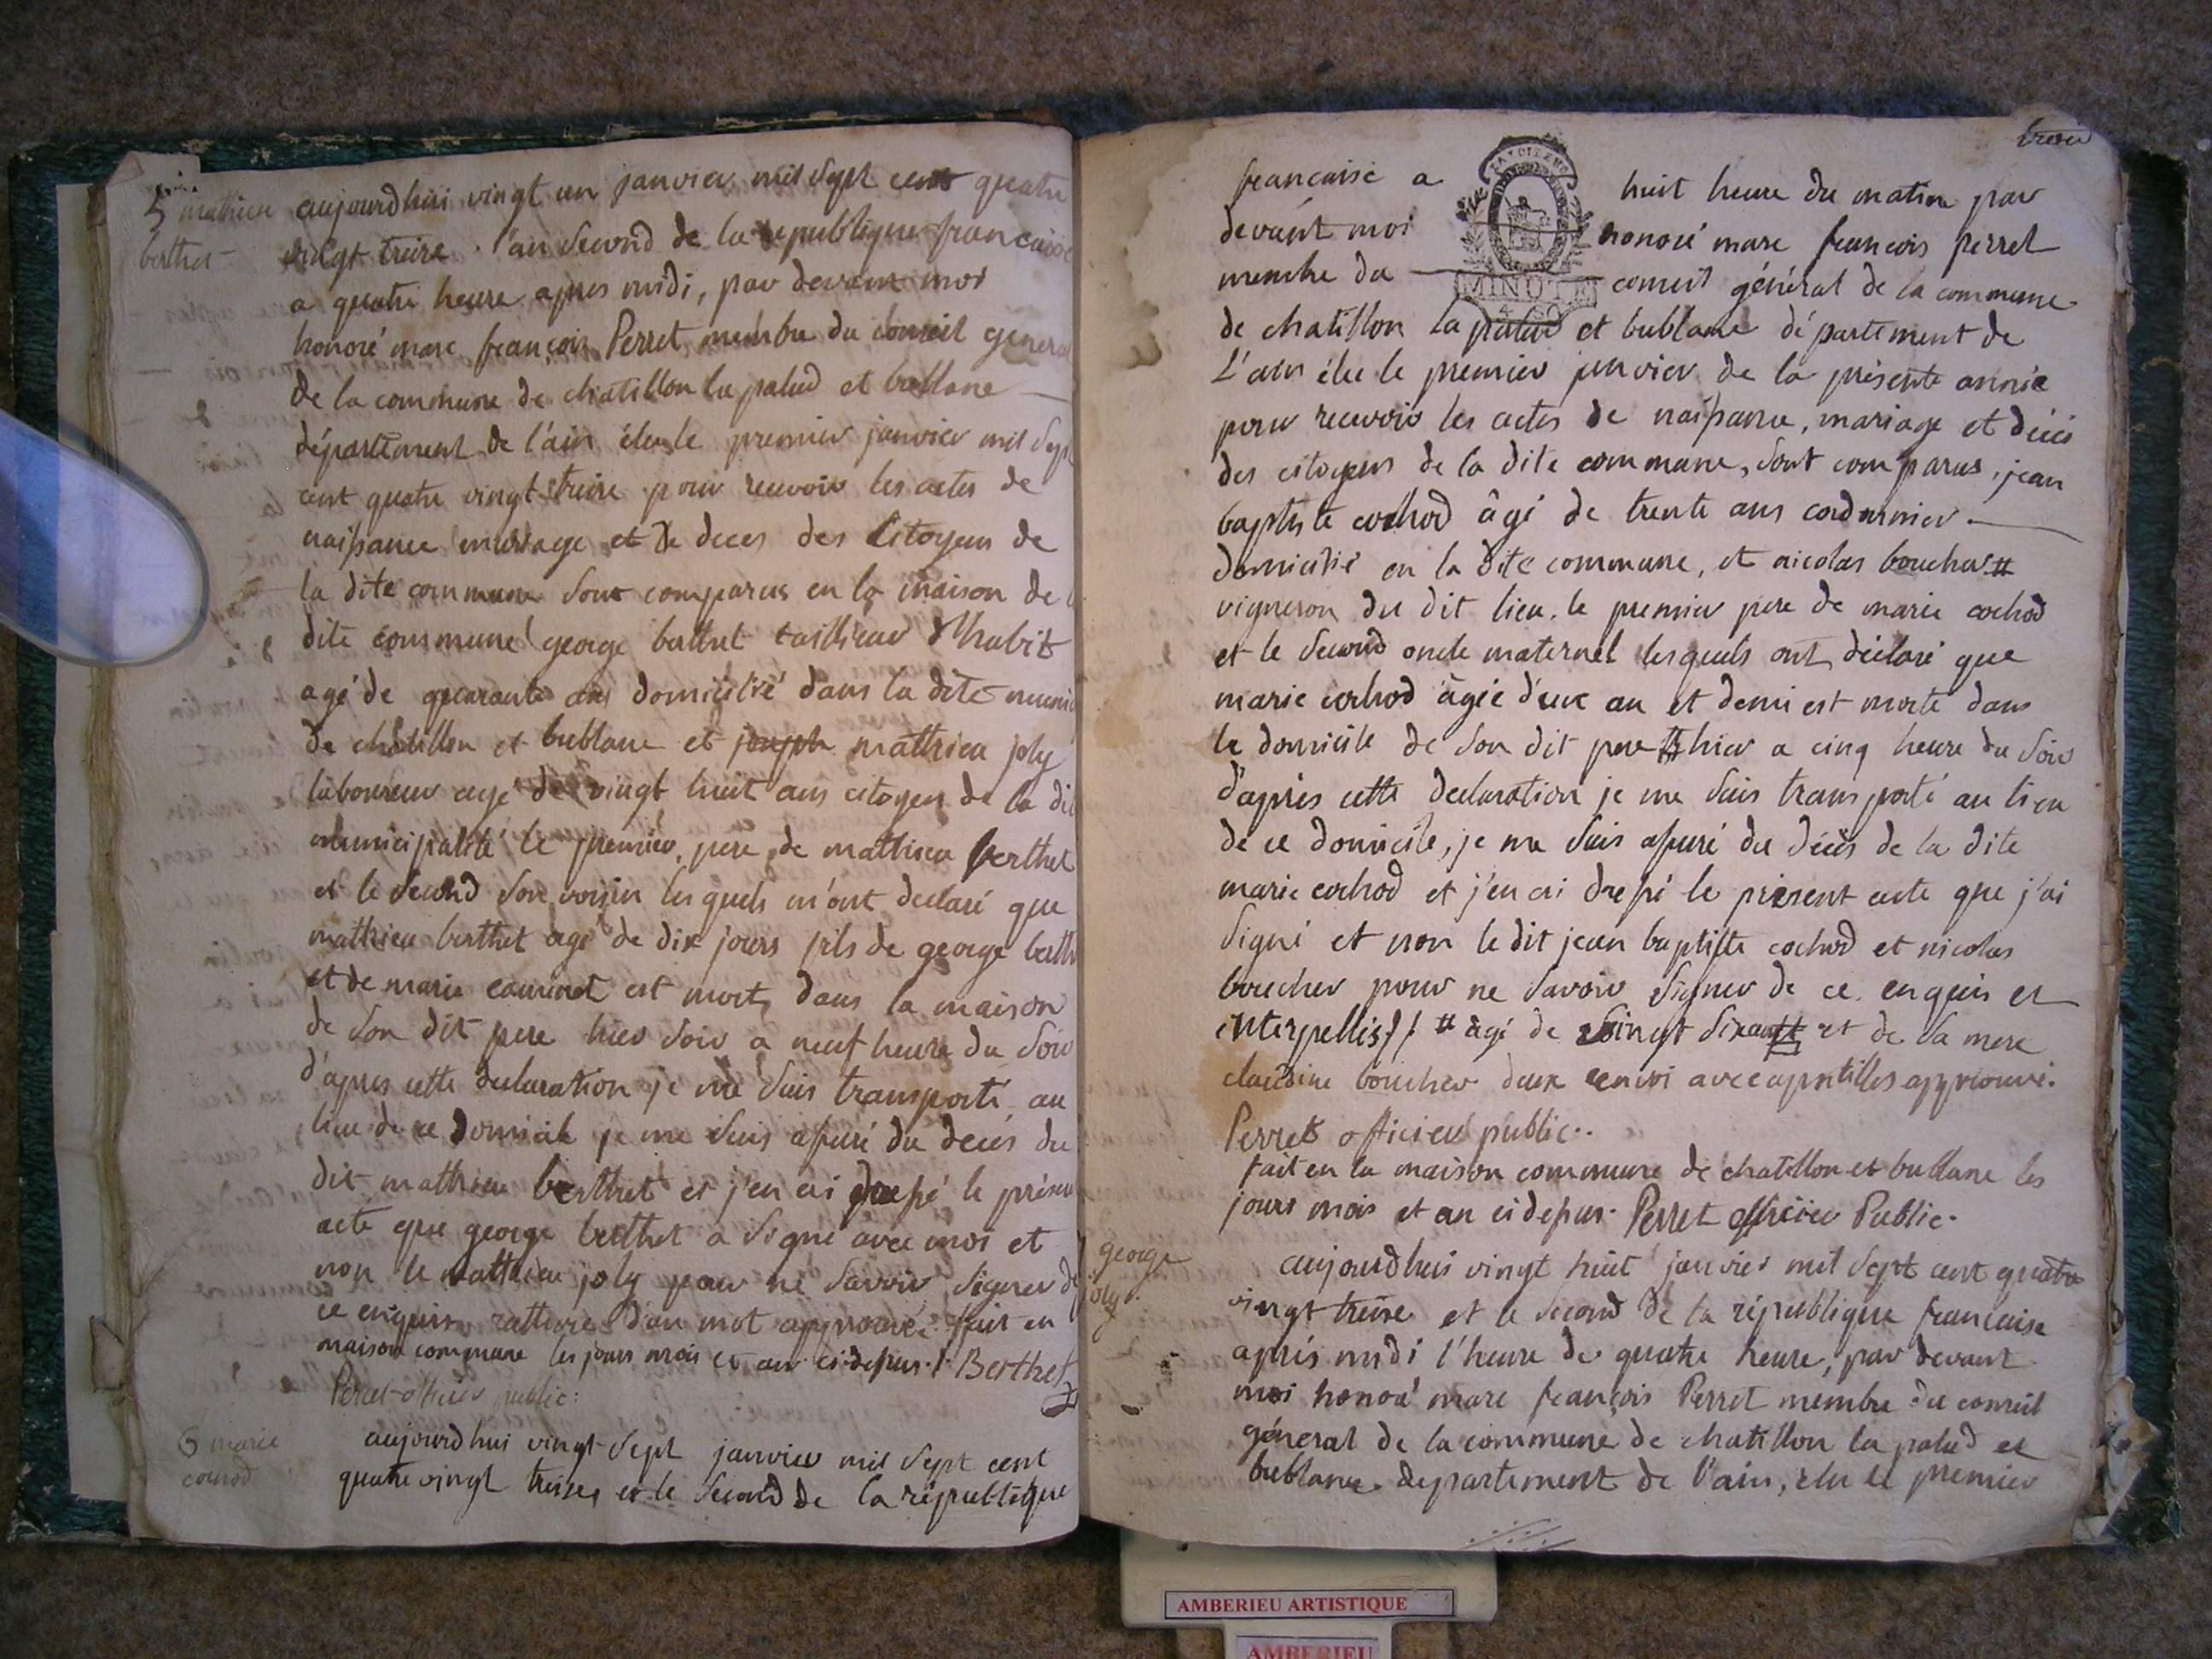 5 mathieu
berthet
aujourdhui vingt un janvier mil sept cent quatre
vingt treize l'an second de la republique francaise
a quatre heure apres midi, par devant moi
honoré marc françois Perret membre du conseil general
de la commune de chatillon la palud et bublane
département de l'ain élu le premier janvier mil sept
cent quatre vingt treize pour recevoir les actes de
naissance mariage et de deces des Citoyens de
la dite commune sont comparus en la maison de
dite commune george berthet taillieur d'habit
agé de quarante ans domicilié dans la dite
de chatillon et bublane et joseph mathieu joly
laboureur agé de vingt huit ans citoyen de la
municipalité le premier père de mathieu berthet
et le second son voisin lesquels m'ont declaré que
mathieu berthet agé de dix jours fils de george
et de marie est mort dans la maison
de son dit pere hier soir a neuf heure du soir
d'apres cette declaration je me suis transporté au
lieu de ce domicile je me suis assuré du decés du
dit mathieu berthet et j'en ai dressé le
acte que george berthet a signé avec moi et
non le mathieu joly pour ne savoir signer de
ce enquis rathure d'un mot approuvé fait en
maison commune les jours mois et an ci dessus Berthet
Perret officier public:
6 marie
cochod
aujourdhui vingt sept janvier mil sept cent
quatre vingt treizes et le second de la république
treize
francaise a huit heure du matin par
devant moi honoré marc francois perret
membre du conseil général de la commune
MINUTE
de chatillon la palud et bublane département de
L'ain élu le premier janvier de la présente année
pour recevoir les actes de naissance, mariage et décés
des citoyens de la dite commune, sont comparus, jean
baptiste cochod âgé de trente ans cordonnier
domicilié en la dite commune, et nicolas boucher #
vigneron du dit lieu. le premier pere de marie cochod
et le second oncle maternel lesquels ont déclaré que
marie cochod âgée d'une an et demi est morte dans
le domicile de son dit pere # hier a cinq heure du soir
d'après cette declaration je me suis transporté au lieu
de ce domicile, je me suis assuré du décès de la dite
marie cochod et j'en ai dressé le présent acte que j'ai
signé et non le dit jean baptiste cochod et nicolas
boucher pour ne savoir signer de ce enquis et
interpellis // # agé de vingt six ans # et de sa mere
claudine boucher deux renvoi avec apostilles approuvé.
Perret officier public..
fait en la maison commune de chatillon et bublane les
jours mois et an ci dessus. Perret officier Public.
george
joly
aujourdhui vingt huit janvier mil sept cent quatre
vingt treise et le second de la république francaise
après midi l'heure de quatre heure, par devant
moi honoré marc françois Perret membre du conseil
géneral de la commune de chatillon la palud et
bublane departement de l'ain, élu le premier
AMBERIEU ARTISTIQUE
AMBERIEU